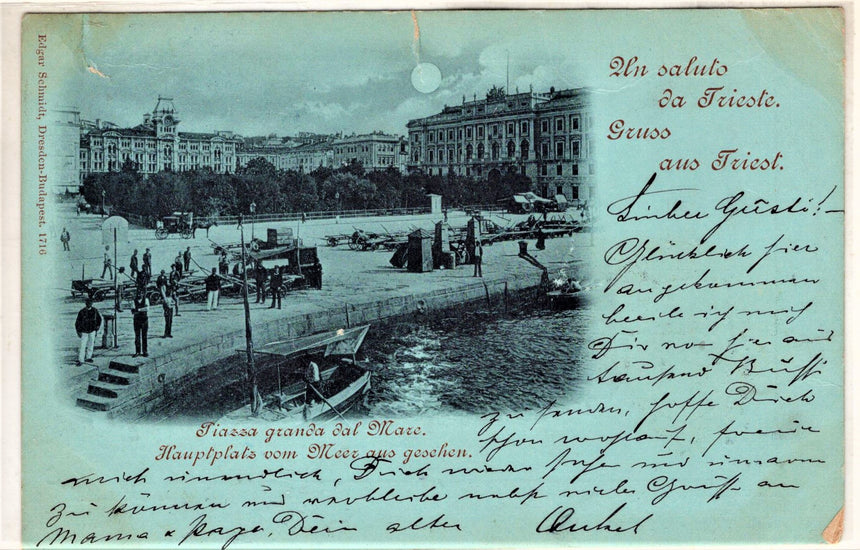 Edgar Schmidt, Dresden-Budapest. 1716
Un saluto
da Trieste.
Gruss
aus Triest.
Piazza granda dal Mare.
Hauptplatz vom Meer aus gesehen.
Lieber Gusti!
Glücklich hier
angekommen
beeile ich mich
Dir von hier aus
tausend Bussi
zu senden, hoffe Dich
schon wohlauf, freue
mich unendlich, Dich wieder sehen und umarmen
zu können und verbleibe nebst vielen Grüsse an
Mama & Papa, Dein alter Onkel